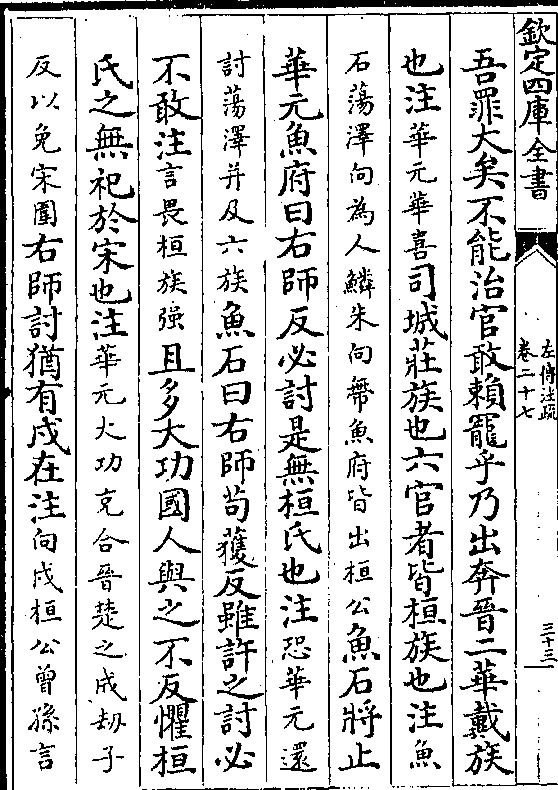 欽定四庫全書
左傳注疏
卷二十七
三十三
吾罪大矣不能治官敢賴寵乎乃出奔晉二華戴族
也注華元華喜司城莊族也六官者皆桓族也注魚
石蕩澤向為人鱗朱向帶魚府皆出桓公魚石將止
華元魚府曰右師反必討是無桓氏也注恐華元還
討蕩澤并及六族魚石曰右師茍獲反雖許之討必
不敢注言畏桓族强且多大功國人與之不反懼桓
氏之無祀於宋也注華元大功克合晉楚之成劫子
反以免宋圍右師討猶有戌在注向戌桓公曾孫言